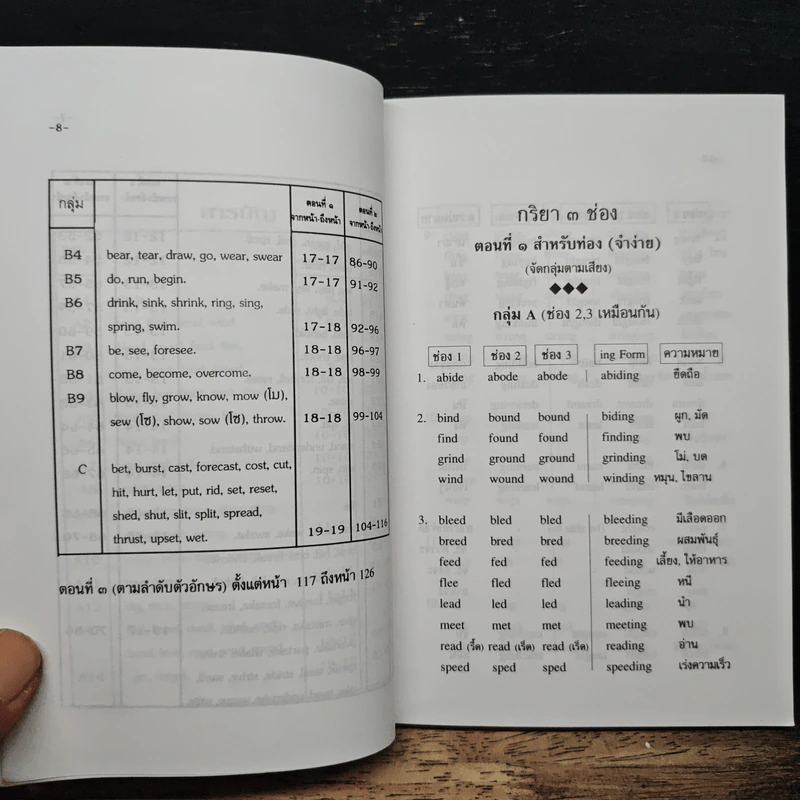 -8-
กลุ่ม ตอนที่ ๑ จากหน้า-ถึงหน้า ตอนที่ ๒ จากหน้า-ถึงหน้า
B4 bear, tear, draw, go, wear, swear 17-17 86-90
B5 do, run, begin. 17-17 91-92
B6 drink, sink, shrink, ring, sing,
spring, swim. 17-18 92-96
B7 be, see, foresee. 18-18 96-97
B8 come, become, overcome. 18-18 98-99
B9 blow, fly, grow, know, mow (โม),
sew (โซ), show, sow (โซ), throw. 18-18 99-104
C bet, burst, cast, forecast, cost, cut,
hit, hurt, let, put, rid, set, reset,
shed, shut, slit, split, spread,
thrust, upset, wet. 19-19 104-116
ตอนที่ ๓ (ตามลำดับตัวอักษร) ตั้งแต่หน้า 117 ถึงหน้า 126
กริยา ๓ ช่อง
ตอนที่ ๑ สำหรับท่อง (จำง่าย)
(จัดกลุ่มตามเสียง)
◆◆◆
กลุ่ม A (ช่อง 2,3 เหมือนกัน)
ช่อง 1 ช่อง 2 ช่อง 3 ing Form ความหมาย
1. abide abode abode abiding ยึดถือ
2. bind bound bound biding ผูก, มัด
find found found finding พบ
grind ground ground grinding โม่, บด
wind wound wound winding หมุน, ไขลาน
3. bleed bled bled bleeding มีเลือดออก
breed bred bred breeding ผสมพันธุ์
feed fed fed feeding เลี้ยง, ให้อาหาร
flee fled fled fleeing หนี
lead led led leading นำ
meet met met meeting พบ
read (รี้ด) read (เร็ด) read (เร็ด) reading อ่าน
speed sped sped speeding เร่งความเร็ว